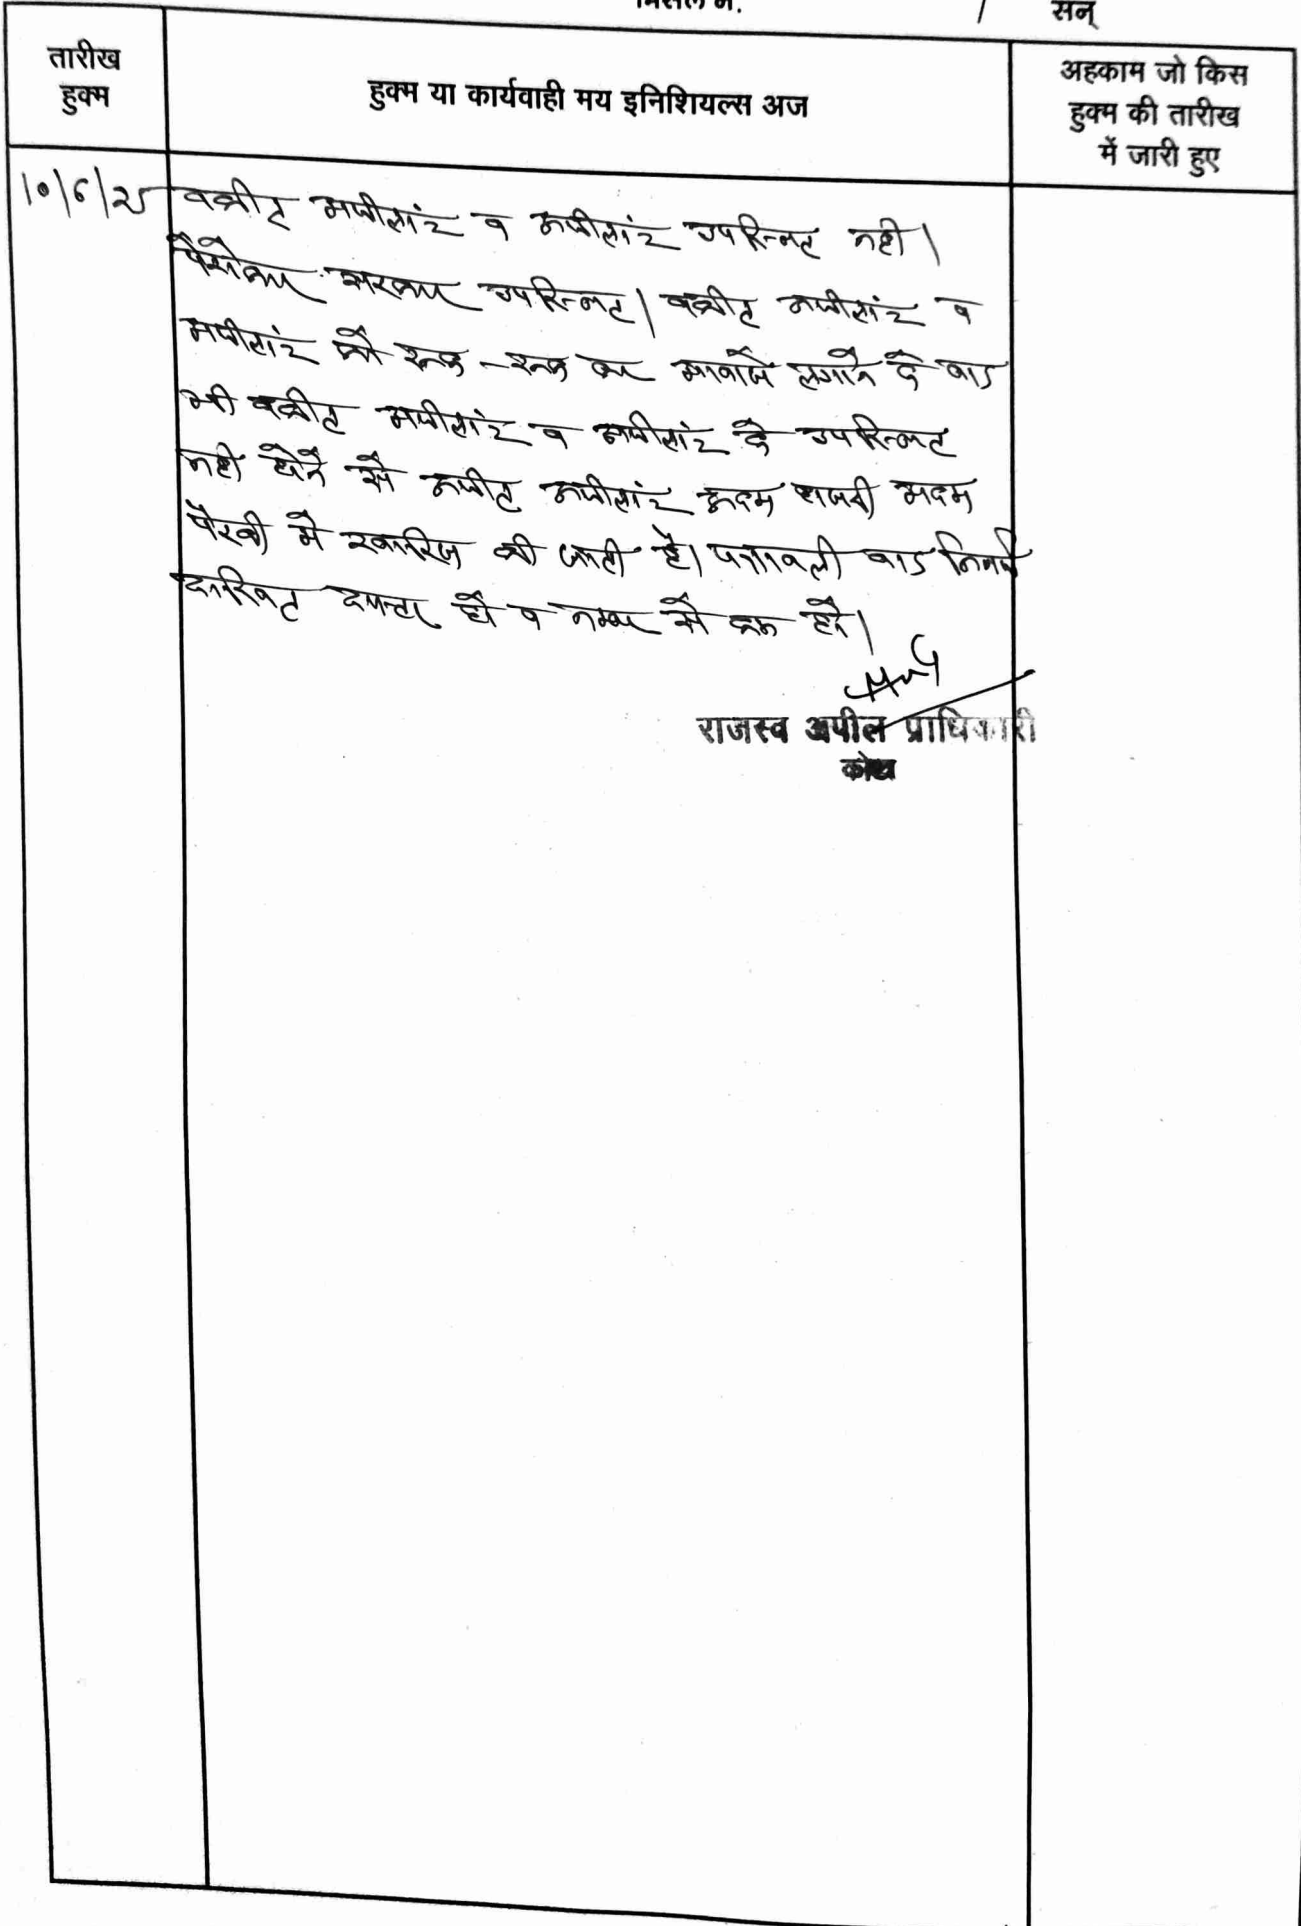 मिसल नं. / सन्
तारीख
हुक्म
हुक्म या कार्यवाही मय इनिशियल्स अज
अहकाम जो किस
हुक्म की तारीख
में जारी हुए
10/6/25 वकील अपीलांट व अपीलांट उपस्थित नही।
पैरोकार सरकार उपस्थित। वकील अपीलांट व
अपीलांट को रुक-रुक कर आवाजे लगाने के बाद
भी वकील अपीलांट व अपीलांट के उपस्थित
नही होने से अपील अपीलांट अदम हाजरी अदम
पैरवी मे खारिज की जाती है। पत्रावली बाद
दाखिल दफ्तर हो व नम्बर से कम हो।
राजस्व अपील प्राधिकारी
कोटा